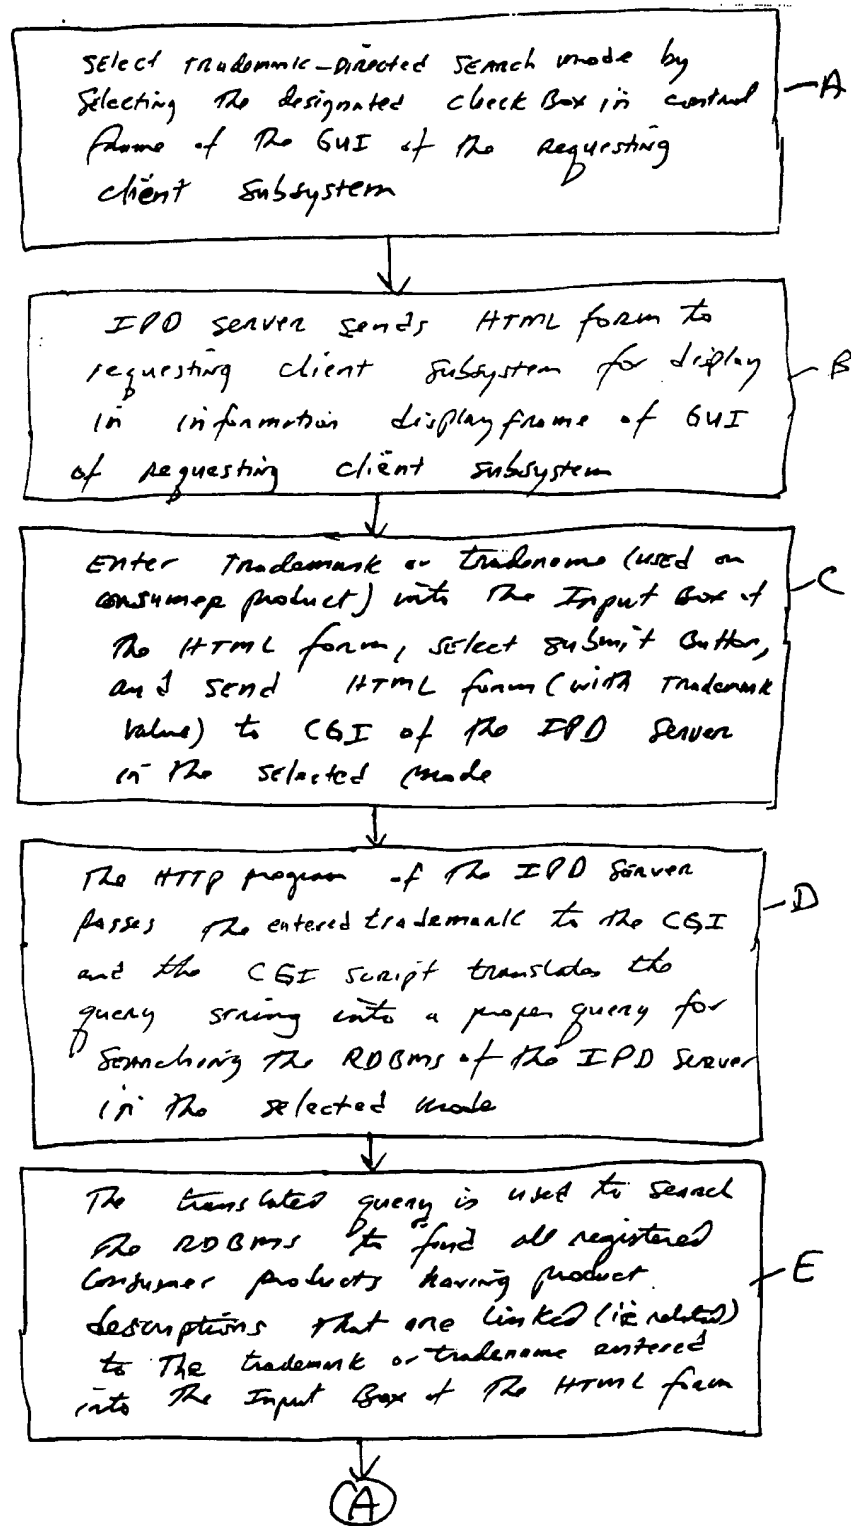 Select Trademark-Directed Search mode by
Selecting the designated check Box in control
frame of the GUI of the requesting
client subsystem
A
IPD server sends HTML form to
requesting client subsystem for display
in information display frame of GUI
of requesting client subsystem
B
Enter Trademark or tradename (used on
consumer product) into the Input Box of
the HTML form, select submit Button,
and send HTML form (with Trademark
value) to CGI of the IPD Server
in the selected mode
C
The HTTP program of the IPD Server
passes the entered trademark to the CGI
and the CGI script translates the
query string into a proper query for
Searching the RDBMS of the IPD Server
in the selected mode
D
The translated query is used to search
the RDBMS to find all registered
consumer products having product
descriptions that are linked (ie related)
to the trademark or tradename entered
into the Input Box of the HTML form
E
A